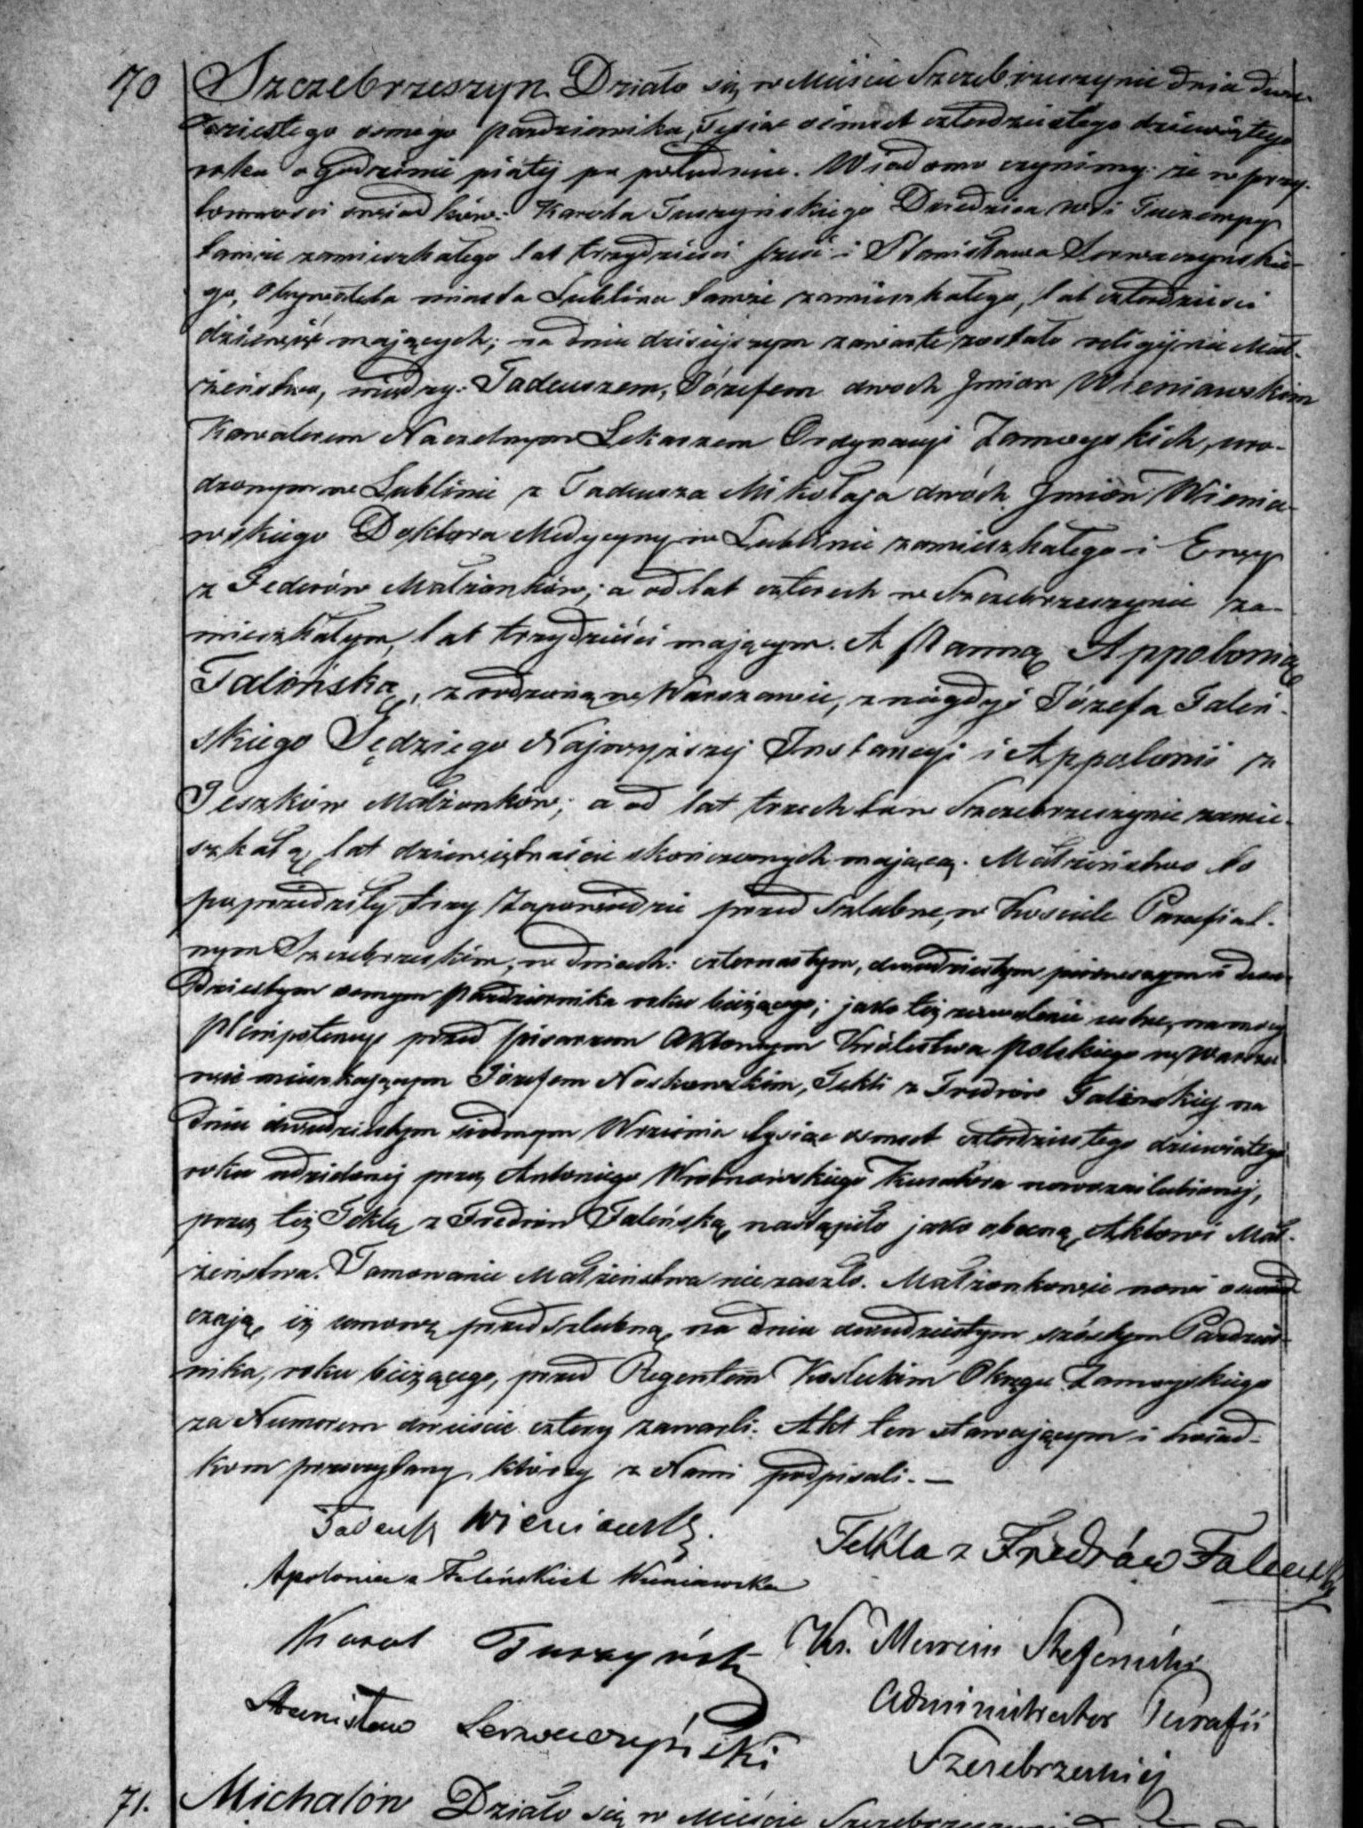 70 Szczebrzeszyn. Działo się w Mieście Szczebrzeszynie dnia dwu-
dziestego osmego pazdziernika, tysiac osmset czterdziestego dziewiątego
roku o Godzinie piątej po południu. Wiadomo czynimy: że w przy-
tomności swiadków: Karola Turzyńskiego Dziedzica wsi
tamże zamieszkałego lat trzydzieści szesć i Stanisława Serwaczyńskie-
go, Obywatela miasta Lublina tamże zamieszkałego, lat czterdzieści
dziewięć mających; na dniu dzisiejszym zawarte zostało religijnie Mał-
żeństwo, między: Tadeuszem, Józefem dwoch Jmion Wieniawskim
Kawalerem Naczelnym Lekarzem Ordynacyi Zamoyskich, uro-
dzonym w Lublinie z Tadeusza Mikołaja dwóch Jmion Wienia-
wskiego Doktora Medycyny w Lublinie zamieszkałego i Ewy
z Federów Małżonków; a od lat czterech w Szczebrzeszynie za-
mieszkałym, lat trzydzieści mającym. A Panną Appolonią
Falińską, zrodzoną w Warszawie, z niegdyś Józefa Faleń-
skiego Sędziego Najwyższej Instancyi i Appolonii z
Jeszków Małżonków; a od lat trzech tu w Szczebrzeszynie zamie-
szkałą, lat dziewiętnaście skończonych mającą. Małżeństwo to
poprzedziły trzy Zapowiedzie przed szlubne, w Kosciele Parafial-
nym Szczebrzeskim, w dniach: czternastym, dwudziestym pierwszym i dwu-
dziestym osmym Pazdziernika roku bieżącego; jako też zezwolenie na mocy
Plenipotencyi przed pisarzem Aktowym Królestwa Polskiego w Warsza-
wie mieszkającym Józefem Noskowskim, Tekli z Fredrów Falińskiej na
dniu dwudziestym siodmym Wrzesnia tysiac osmset czterdziestego dziewiątego
roku udzielonej przez Antoniego Wrotnowskiego Kuratora nowozaślubionej,
przez też Teklę z Fredrów Faleńską, nastąpiło jako obecną Aktowi Mał-
żeństwa. Tamowanie Małżeństwa nie zaszło. Małżonkowie nowi oswiad-
czają, iż umowę przedszlubną, na dniu dwudziestym szóstym Pazdzier-
nika, roku bieżącego, przed Regentem Kosteckim Okręgu Zamoyskiego
za Numerem dwieście cztery zawarli. Akt ten stawającym i swiad-
kom przeczytany, którzy z Nami podpisali. —
Tadeusz Wieniawski.
Tekla z Fredrów Faleńska
Apolonia z Falińskich Wieniawska
Karol Turzyński
Ks. Marcin
Stanisław Serwaczyński
Administrator Parafii
Szczebrzeskiej
71. Michalów Działo się w Mieście